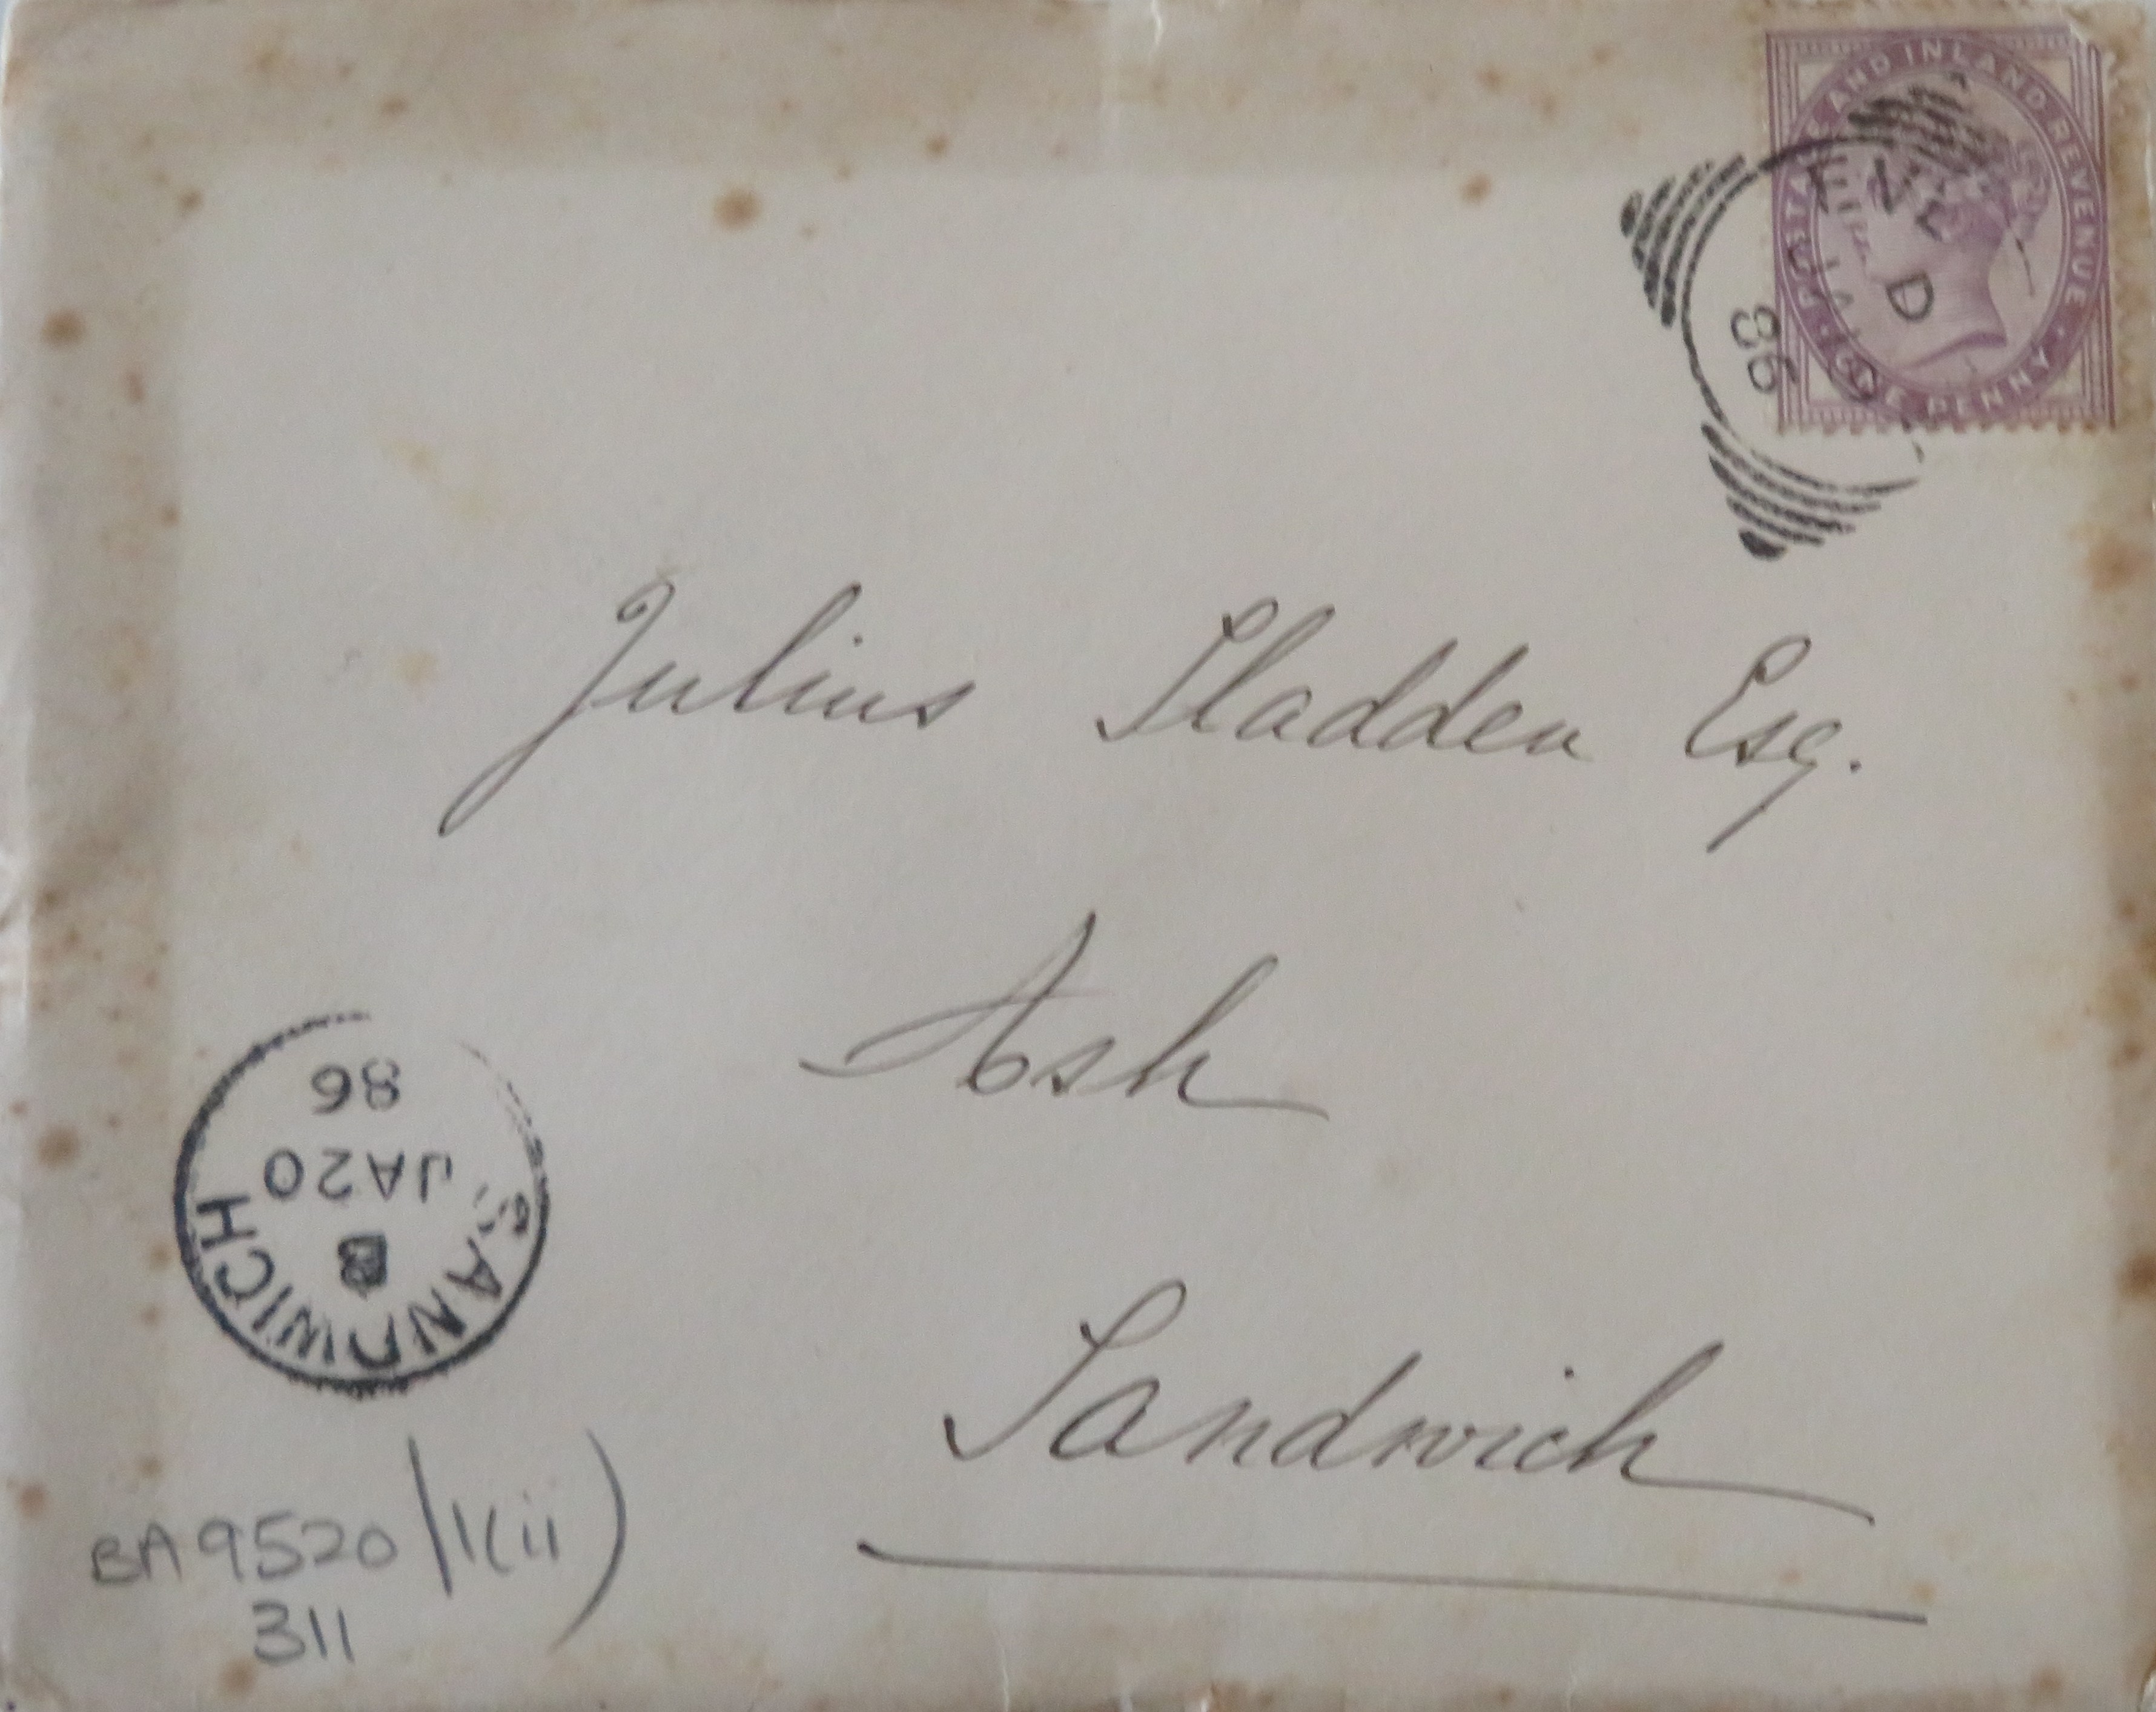 POSTAGE AND INLAND REVENUE
ONE PENNY
D
86
Julius Sladden Esq.
Ash
Sandwich
SANDWICH
B
JA20
86
BA9520/1(ii)
311